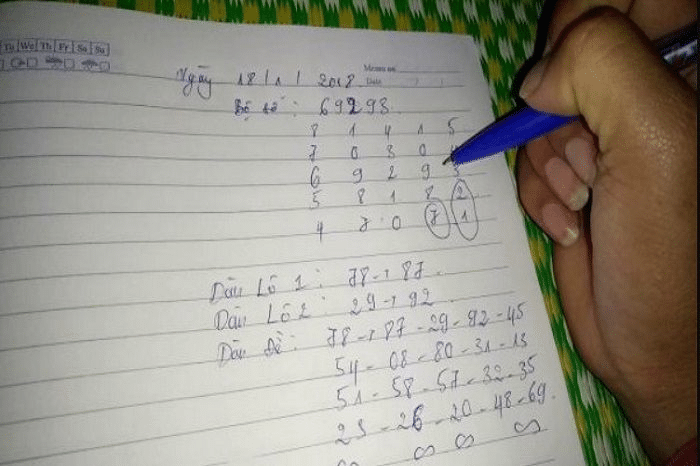 Tu We Th Fr Sa Su
Memo no.
Date / /
Ngày 18 / 1 / 2018
Bộ đề : 69293.
8 1 4 1 5
7 0 3 0 4
6 9 2 9 3
5 8 1 8 2
4 7 0 7 1
Dàn Lô 1 : 78 → 87.
Dàn Lô 2 : 29 → 92.
Dàn Đề : 78 → 87 - 29 - 92 - 45
54 - 08 - 80 - 31 - 13
51 - 58 - 57 - 32 - 35
23 - 26 - 20 - 48 - 69.